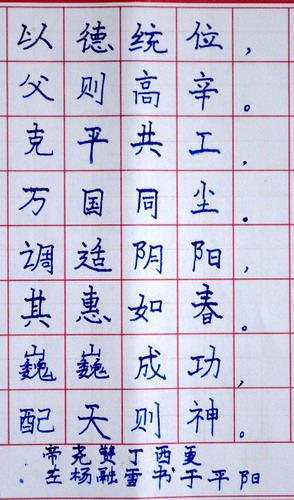 以德统位，
父则高辛。
克平共工，
万国同尘。
调适阴阳，
其惠如春。
巍巍成功，
配天则神。
帝尧赞丁酉夏
左杨融雪书于平阳